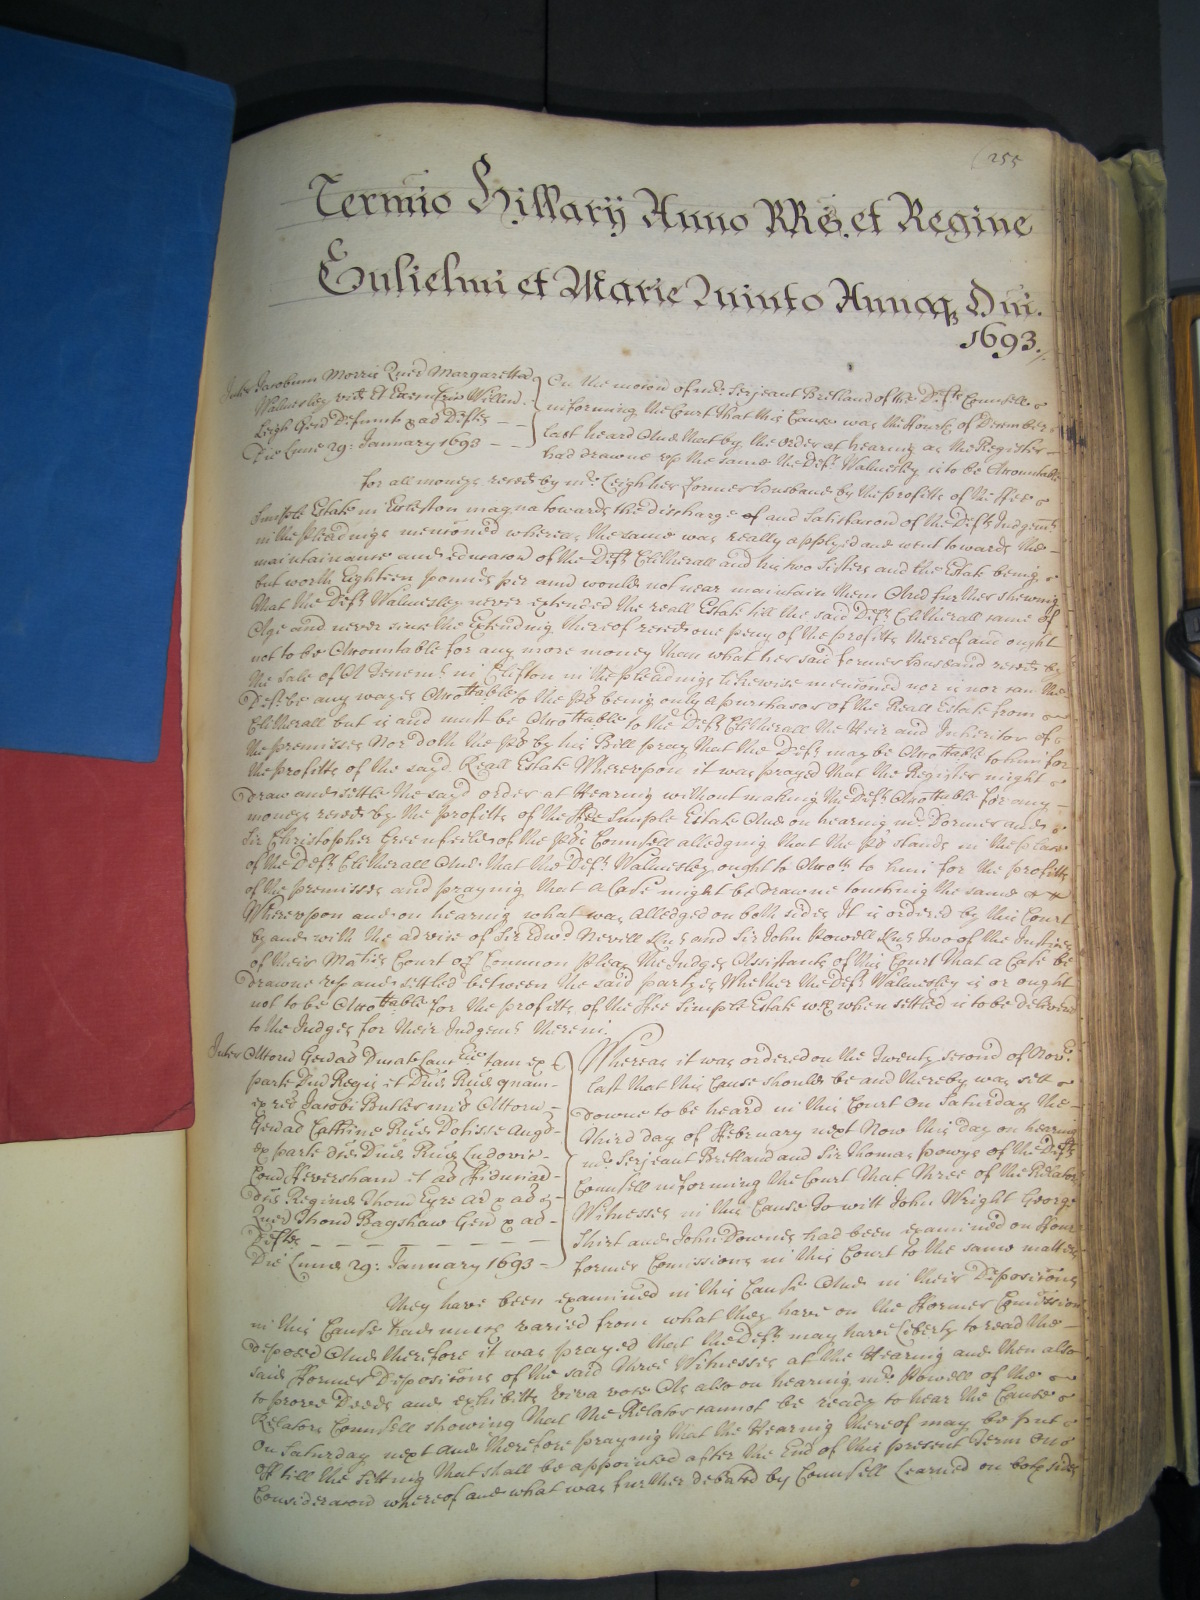 (255
Termio Hillarij Anno RRs. et Regine
Gulielmi et Marie Quinto Annoq Dni.
1693.
Inter Jacobum Morris Quer Margaretta
Walmesley vid Et Willm
Leigh Gen Defunct ad Deftes
Die Lune 29: January 1693
On the mocion of mr. Serjeant Bretland of the Defts Councell
informing the Court that this Cause was the fourth of December
last heard And that by the order at hearing as the Register
had drawne vp the same the Deft Walmesley is to be Accountable
for all moneys reced by mr Leigh her former husband by the profitts of the ffee
Simple Estate in Eccleston magna towards the discharge of and Satisfaccion of the Defts Judgemt
in the pleadings mencioned whereas the same was really applyed and went towards the
maintainance and educacion of the Deft Clitherall and his two Sisters and the Estate being
but worth Eighteen pounds per annum would not near maintain them And further shewing
that the Deft Walmesley never extended the reall Estate till the said Deft Clitherall came of
Age and never since the Extending thereof reced one peny of the profitts thereof and ought
not to be Accountable for any more money than what her said former husband reced by
the sale of A Tenemt in Clifton in the pleadings likewise mencioned nor is nor can the
Deft be any wayes Accottable to the Plt being only a purchasor of the Reall Estate from
Clitherall but is and must be Accottable to the Deft Clitherall the Heir and Inheritor of
the premisses Nor doth the Plt by his Bill pray that the Deft may be Accottable to him for
the profitts of the sayd Reall Estate Wherevpon it was prayed that the Register might
draw and settle the sayd order at Hearing without making the Deft Accottable for any
moneys reced by the profitts of the ffee Simple Estate And on hearing mr Dormer and
Sir Christopher Greenfield of the Plts Councell alledging that the Plt stands in the place
of the Deft Clitherall And that the Deft Walmesley ought to Accott to him for the profitts
of the premisses and praying that a Case might be drawne touching the same
Wherevpon and on hearing what was alledged on both sides It is ordered by this Court
by and with the advice of Sir Edwd Nevill Knt and Sir John Powell Knt two of the Justices
of their Maties Court of Common pleas the Judges Assistants of this Court that a Case be
drawne vp and settled between the said partyes Whether the Deft Walmesley is or ought
not to be Accottable for the profitts of the ffee Simple Estate wch when settled is to be delivered
to the Judges for their Judgemt therein
Inter Attorn Gen ad Ducat Lancastrie tam ex
parte Dni Regis et Dne Rne quam
ex rel Jacobi Butler Attorn
Gen ad Catherine Rne Dotisse
ex parte dce Dne Rne Ludovic
Com ffeversham et
dce Regine Thom Eyre ar
Quer Thom Bagshaw Gen ad
Deftes
Die Lune 29: January 1693
Whereas it was ordered on the Twenty second of Novr
last that this Cause should be and thereby was sett
downe to be heard in this Court On Saturday the
third day of ffebruary next Now this day on hearing
mr Serjeant Bretland and Sir Thomas Powys of the Defts
Councell informing the Court that three of the Relators
Witnesses in this Cause To witt John Wright George
Shirt and John Downes had been examined on four
former Comissions in this Court to the same matters
they have been examined in this Cause And in their Deposicions
in this Cause have much varied from what they have on the fformer Comission
deposed And therefore it was prayed that the Deft may have liberty to read the
said fformer Deposicions of the said three Witnesses at the Hearing and then also
to prove Deeds and exhibitts viva voce As also on hearing mr Powell of the
Relators Councell shewing that the Relator cannot be ready to hear the Cause
On Saturday next and therefore praying that the Hearing thereof may be put
off till the sitting that shall be appointed after the End of this present Term On
Consideracion whereof and what was further debated by Councell Learned on both sides